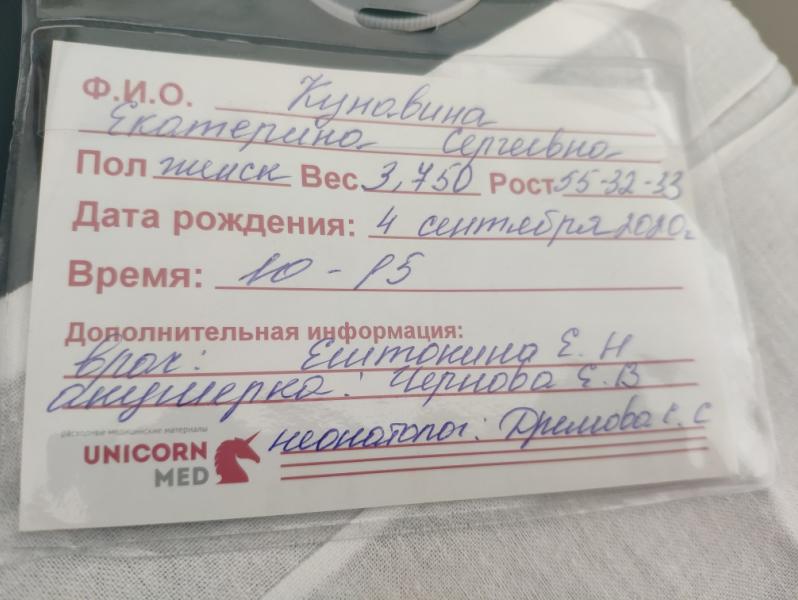 Ф.И.О. Кунавина
Екатерина Сергеевна
Пол женск Вес 3,750 Рост 55-32-33
Дата рождения: 4 сентября 2020г
Время: 10-15
Дополнительная информация:
врач: Ештокина Е. Н
акушерка: Чернова Е.В
расходные медицинские материалы
UNICORN
MED
неонатолог: Дремова С. С